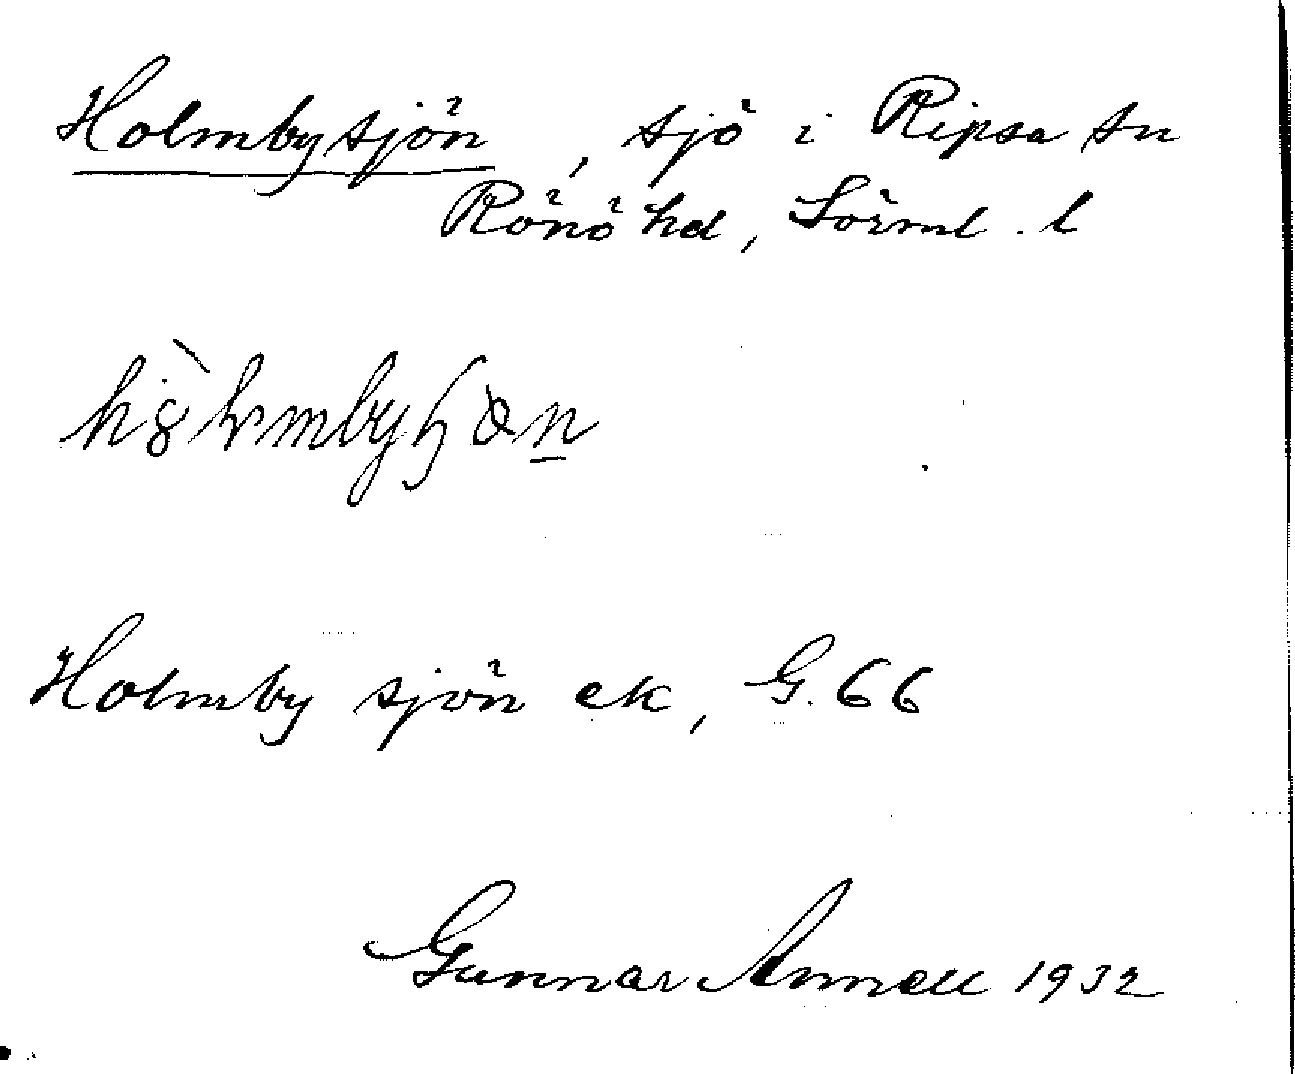 Holmbysjön, sjö i Ripsa sn
Rönö hd, Sörml. l
Holmby sjön ek, G. 66
Gunnar Annell 1932